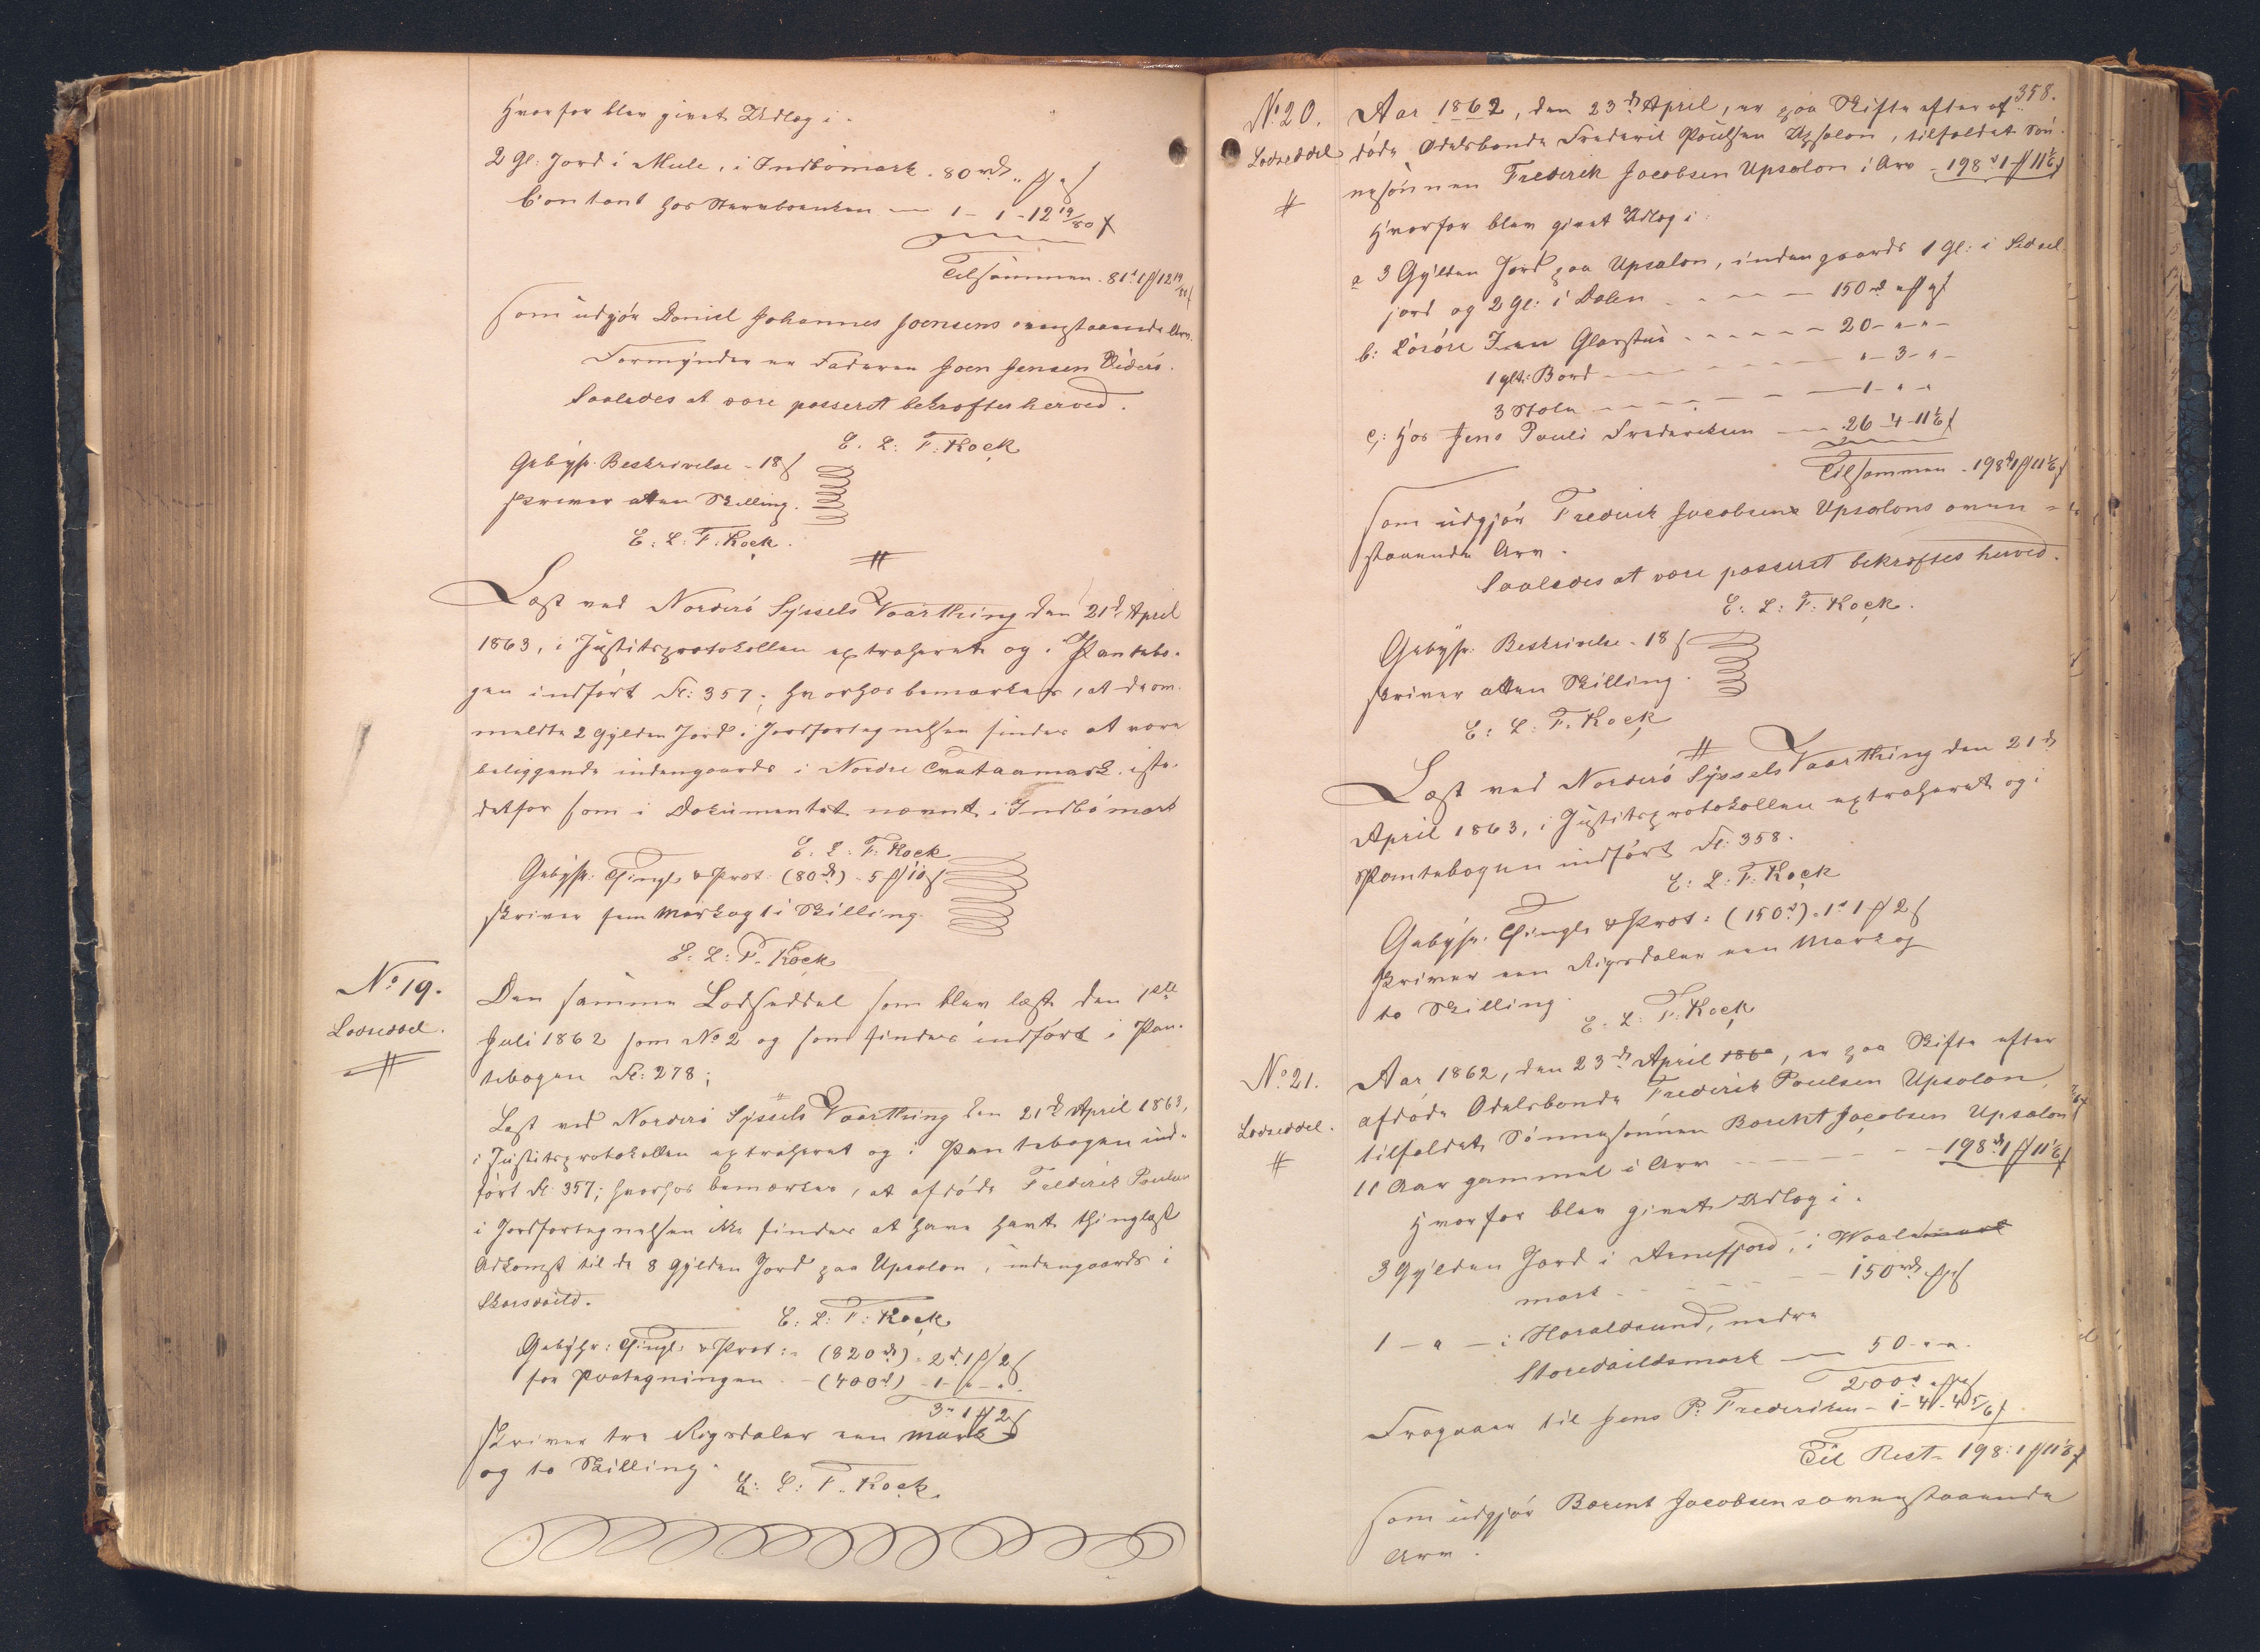 Hvorfor blev givet Udlæg i.
2 Gl: Jord i Mule, i Indbömark . 80 rd „ ß „ f
Contant hos Sterboenken — 1 - 1 - 12 19/80 f
Tilsammen . 81 rd 1 ß 12 19/80 f
som udgjör Daniel Johannes Joensens ovenstaaende Arv.
Formynder er Faderen Joen Jensen Viderö.
Saaledes at være passeret bekræftes herved.
E. L: F: Kock
Gebyhr. Beskrivelse - 18 f
skriver atten Skilling.
E: L: F: Kock.
Læst ved Norderö Syssels Vaarthing den 21d April
1863, i Justitsprotokollen extraheret og i Pantebo-
gen indfört Fl: 357; hvorhos bemærkes, at de om-
meldte 2 Gylden Jord i Jordfortegnelsen findes at være
beliggende indengaards i Nordre Trætaamark iste-
detfor som i Dokumentet nævnt i Indbömark
E. L: F: Kock
Gebyhr: Thingl. & Prot. (80 rd) - 5 ß 10 f
skriver fem Mark og ti Skilling.
E: L: F. Kock
No 19.
Lodseddel.
Den samme Lodseddel som blev læst den 1ste
Juli 1862 som No 2 og som findes indfört i Pan-
tebogen Fl: 278;
Læst ved Norderö Syssels Vaarthing den 21d April 1863,
i Justitsprotokollen extraheret og i Pantebogen ind-
fört Fl: 357; hvorhos bemærkes, at afdöde Frederik Poulsen
i Jordfortegnelsen ikke findes at have havt thinglæst
Adkomst til de 8 Gylden Jord paa Upsalon, indengaards i
E: L: F: Kock
Gebyhr: Thingl: & Prot: - (820 rd) - 2 rd 1 ß 2 f
for Paategningen - (400 rd) - 1 - „ - „
3 rd 1 ß 2 f
skriver tre Rigsdaler een Mark
og to Skilling.
E: L: F. Kock.
358.
No 20.
Lodseddel
Aar 1862, den 23d April, er paa Skifte efter af-
döde Odelsbonde Frederik Poulsen Upsalon, tilfaldet Sön-
nesönnen Frederik Jacobsen Upsalon i Arv - 198 rd 1 ß 11 1/6 f
Hvorfor blev givet Udlæg i:
a 3 Gylden Jord paa Upsalon, indengaards 1 Gl: i
jord og 2 Gl: i Dalen - - - - 150 rd „ ß „ f
b: Lösöre I en Glasstue - - - - 20 - „ - „ -
1 glt: Bord - - - - „ - 3 - „ -
3 Stole - - - - 1 - „ - „
c: Hos Jens Pauli Frederiksen - - 26 - 4 - 11 1/6 f
Tilsammen - 198 rd 1 ß 11 1/6 f
som udgjör Frederik Jacobsens Upsalons oven-
staaende Arv.
Saaledes at være passeret bekræftes herved.
E: L: F: Kock.
Gebyhr. Beskrivelse - 18 f
skriver atten Skilling.
E: L: F. Kock
Læst ved Norderö Syssels Vaarthing den 21d
April 1863, i Justitsprotokollen extraheret og i
Pantebogen indfört Fl: 358.
E: L: F. Kock
Gebyhr. Thingl. & Prot: (150 rd) - 1 rd 1 ß 2 f
skriver een Rigsdaler een Mark og
to Skilling.
E: L: F: Kock
No 21.
Lodseddel.
Aar 1862, den 23d April 186, er paa Skifte efter
afdöde Odelsbonde Frederik Poulsen Upsalon,
tilfaldet Sönnesönnen Barent Jacobsen Upsalon
11 Aar gammel i Arv - - - - 198 rd 1 ß 11 1/6 f
Hvorfor blev givet Udlæg i.
3 Gylden Jord i Arnefjord, i Waalemark
mark - - - - 150 rd „ ß „ f
1 - „ - i Haraldsund, nedre
Storedailsmark - 50 - „ - „
200 rd „ ß „ f
Fragaaer til Jens P. Frederiksen - 1 - 4 - 4 5/6 f
Til Rest - 198 : 1 ß 11 1/6 f
som udgjör Barent Jacobsens ovenstaaende
Arv.